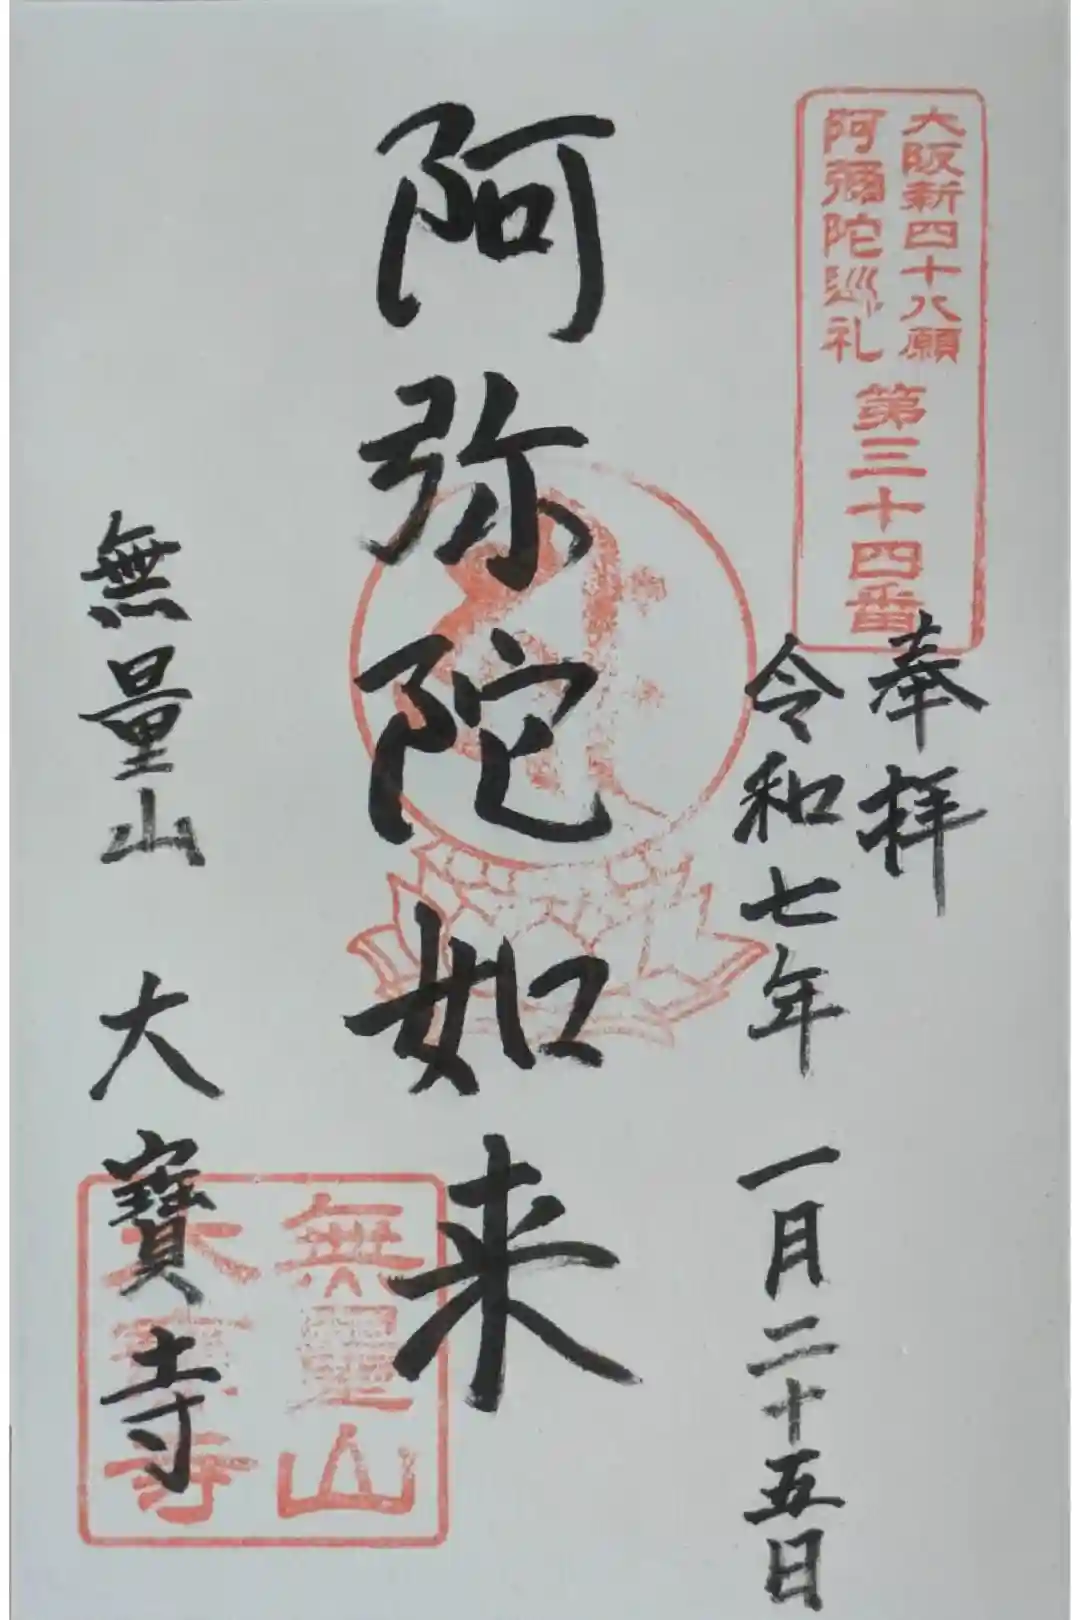 大阪新四十八願
阿彌陀巡礼
第三十四番
奉拝
令和七年 一月二十五日
阿弥陀如来
無量山 大寶寺
無量山
大寶寺